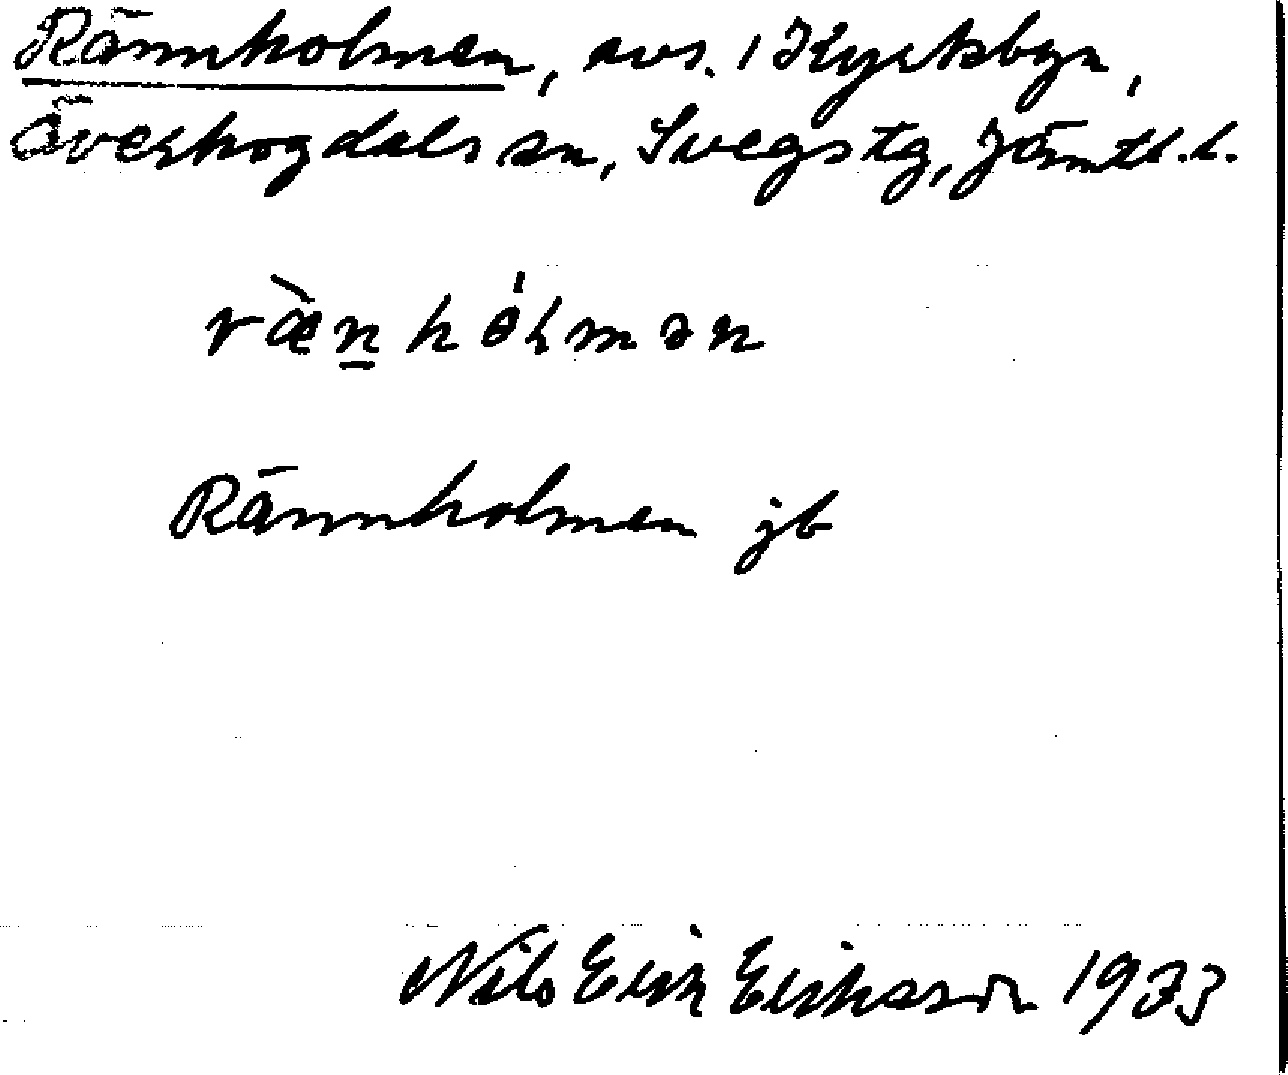 Rännholmen, avs. i Kyrkbyn,
Överhogdals sn, Svegs tg, Jämtl. l.
ræ̀n̲hólmən
Rännholmen jb
Nils Erik Eriksson 1933